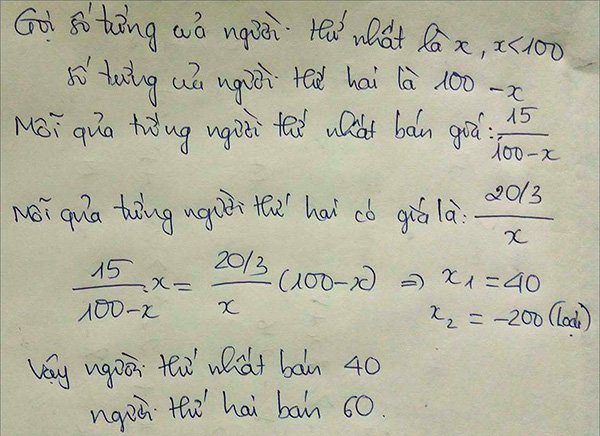 Gọi số trứng của người thứ nhất là x, x<100
số trứng của người thứ hai là 100 - x
Mỗi quả trứng người thứ nhất bán giá: 15/(100-x)
Mỗi quả trứng người thứ hai có giá là: (20/3)/x
15/(100-x) . x = (20/3)/x (100-x) => x1 = 40
x2 = -200 (loại)
Vậy người thứ nhất bán 40
người thứ hai bán 60.